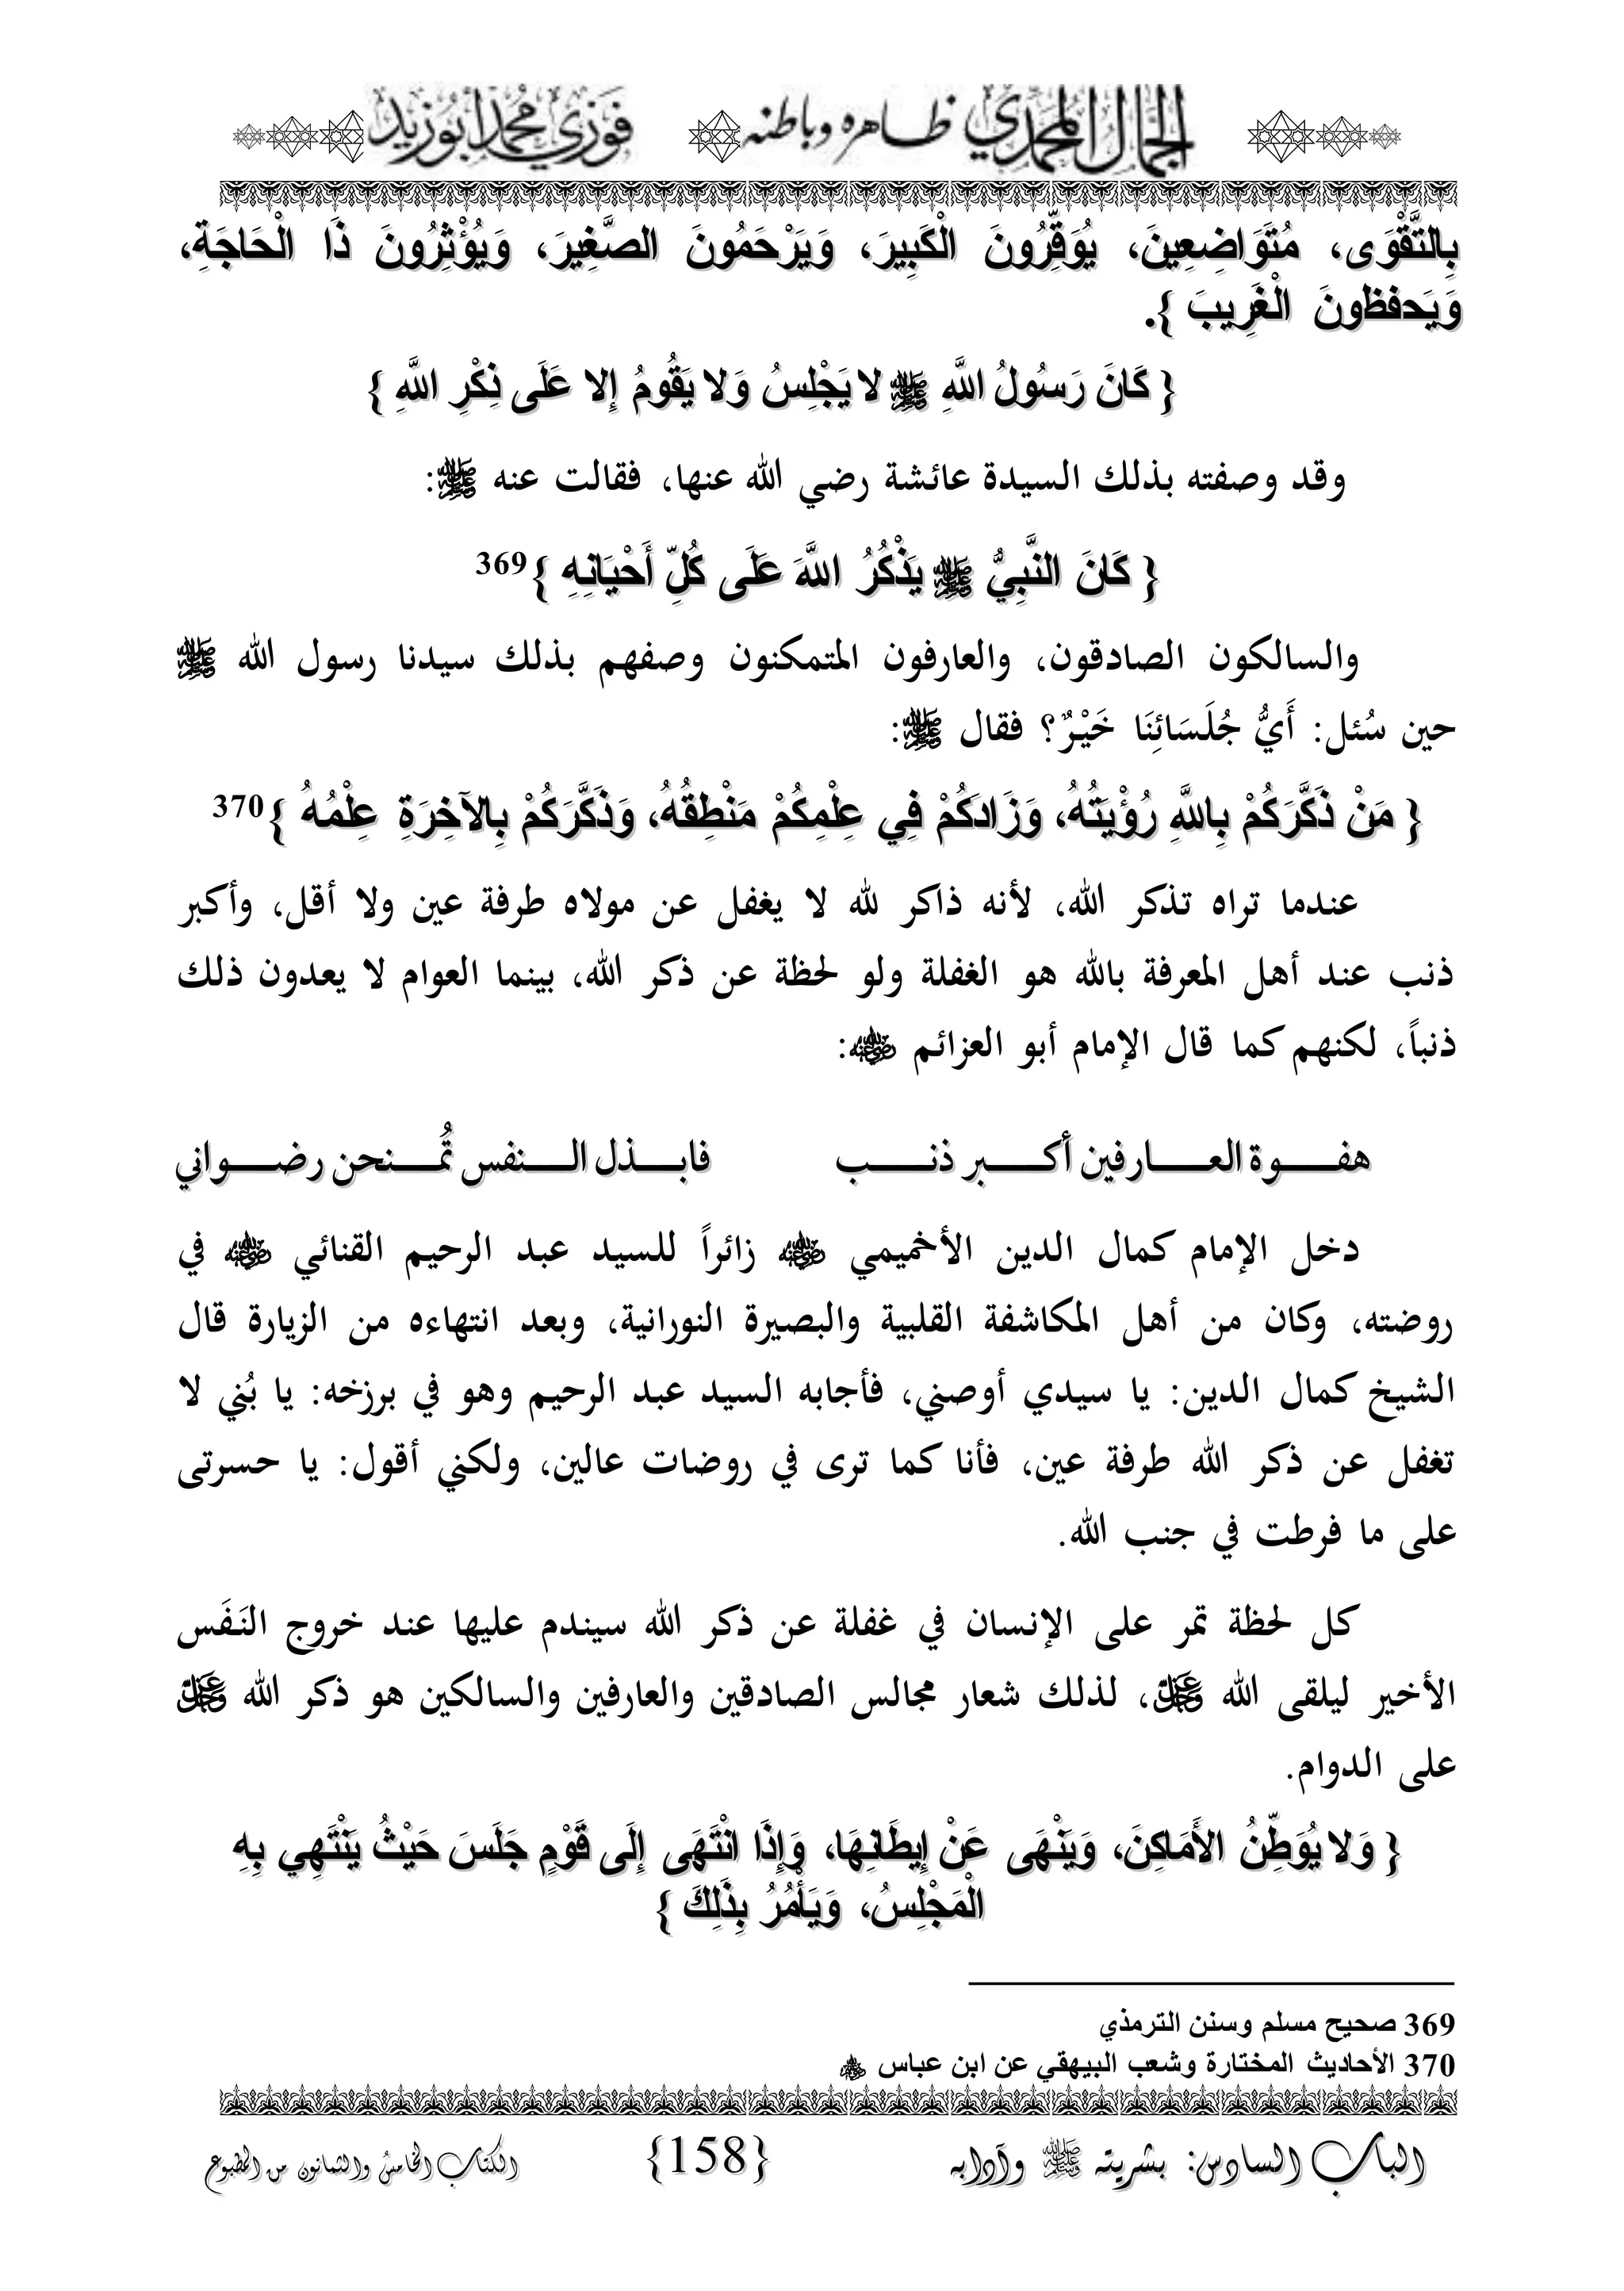 الجمال المحمدي ظاهره وباطنه فوزي محمد أبوزيد
بِالتَّقْوَى، مُتَوَاضِعِينَ، يُوَقِّرُونَ الْكَبِيرَ، وَيَرْحَمُونَ الصَّغِيرَ، وَيُؤْثِرُونَ ذَا الْحَاجَةِ،
وَيَحفظونَ الْغَرِيبَ }.
{ كَانَ رَسُولُ اللَّهِ ﷺ لا يَجْلِسُ وَلا يَقُومُ إِلا عَلَى ذِكْرِ اللَّهِ }
وقد وصفته بذلك السيدة عائشة رضي الله عنها، فقالت عنه ﷺ:
{ كَانَ النَّبِيُّ ﷺ يَذْكُرُ اللَّهَ عَلَى كُلِّ أَحْيَانِهِ }369
والسالكون الصادقون، والعارفون المتمكنون وصفهم بذلك سيدنا رسول الله ﷺ
حين سُئل: أَيُّ جُلَسَائِنَا خَيْرٌ؟ فقال ﷺ:
{ مَنْ ذَكَّرَكُمْ بِاللَّهِ رُؤْيَتُهُ، وَزَادَكُمْ فِي عِلْمِكُمْ مَنْطِقُهُ، وَذَكَّرَكُمْ بِالآخِرَةِ عِلْمُهُ }370
عندما تراه تذكر الله، لأنه ذاكر لله لا يغفل عن مولاه طرفة عين ولا أقل، وأكبر
ذنب عند أهل المعرفة بالله هو الغفلة ولو لحظة عن ذكر الله، بينما العوام لا يعدون ذلك
ذنباً، لكنهم كما قال الإمام أبو العزائم رضي الله عنه:
هفـــوة العـــارفين أكـــبر ذنـــب فابـــذل الـــنفس تُمـــنحن رضـــواني
دخل الإمام كمال الدين الأخميمي رضي الله عنه زائراً للسيد عبد الرحيم القنائي رضي الله عنه في
روضته، وكان من أهل المكاشفة القلبية والبصيرة النورانية، وبعد انتهاءه من الزيارة قال
الشيخ كمال الدين: يا سيدي أوصني، فأجابه السيد عبد الرحيم وهو في برزخه: يا بُني لا
تغفل عن ذكر الله طرفة عين، فأنا كما ترى في روضات عالين، ولكني أقول: يا حسرتى
على ما فرطت في جنب الله.
كل لحظة تمر على الإنسان في غفلة عن ذكر الله سيندم عليها عند خروج النَفَس
الأخير ليلقى الله عز وجل، لذلك شعار مجالس الصادقين والعارفين والسالكين هو ذكر الله عز وجل
على الدوام.
{ وَلا يُوَطِّنُ الأَمَاكِنَ، وَيَنْهَى عَنْ إِيطَانِهَا، وَإِذَا انْتَهَى إِلَى قَوْمٍ جَلَسَ حَيْثُ يَنْتَهِي بِهِ
الْمَجْلِسُ، وَيَأْمُرُ بِذَلِكَ }
369 صحيح مسلم وسنن الترمذي
370 الأحاديث المختارة وشعب البيهقي عن ابن عباس رضي الله عنه
الباب السادس: بشريته ﷺ وآدابه {158} الكتاب الخامس والثمانون من المطبوع